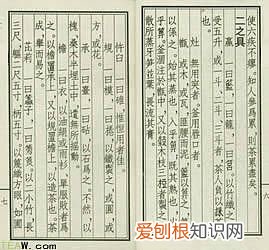 使六疾不瘳。知人參爲累，則茶累盡矣。
二之具
籯，一曰籃，一曰籠，一曰筥。以竹織之，
受五升，或一斗、二斗、三斗者，茶人負以採茶
竈，無用突者。釜，用脣口者。
甑，或木或瓦，匪腰而泥，籃以箄之，篾
以系之。始其蒸也，入乎箄，既其熟也，出
乎箄。釜涸，注於甑中。又以榖木枝三椏者制之，
散所蒸牙笋並葉，畏流其膏。
六
杵臼 一曰碓，惟恒用者佳。
規 一曰模，一曰棬。以鐵制之，或圓，或
方，或花。
承 一曰臺，一曰砧。以石爲之。不然，以
槐、桑木半埋土中，遣無所搖動。
檐 一曰衣。以油絹或雨衫、單服敗者爲
之。以檐置承上，又以規置檐上，以造茶也。茶
成，舉而易之。
芘莉 一曰籯子，一曰篣筤。以二小竹，長
三尺，軀二尺五寸，柄五寸。以篾織方眼，如圃
七
TEAW.com
爱刨根知识网